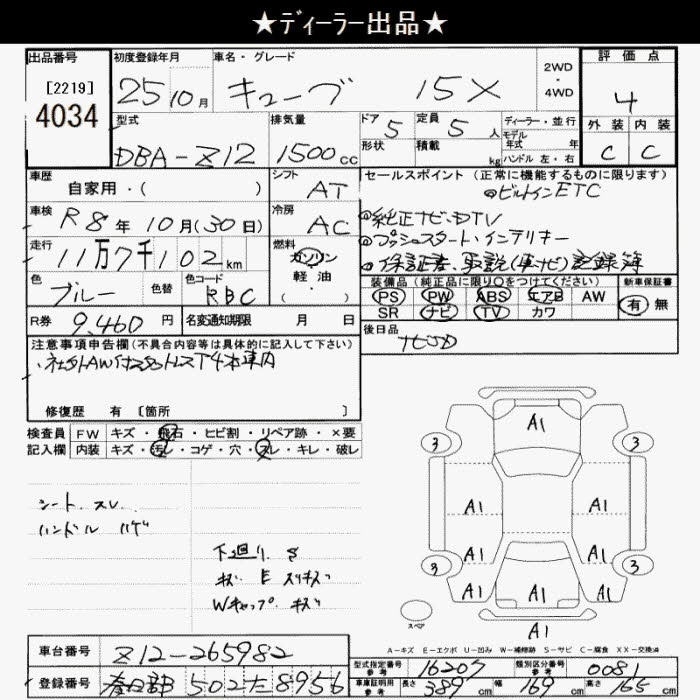 ★ディーラー出品★
出品番号
[2219]
4034
初度登録年月
25 10月
車名・グレード
キューブ 15X
2WD
・
4WD
評価点
4
外装 内装
C C
型式
DBA-Z12
排気量
1500cc
ドア 5
定員 5 人
形状
積載 kg
ディーラー・並行
モデル
年式 年
ハンドル 左・右
車歴
自家用・( )
シフト
AT
セールスポイント (正常に機能するものに限ります)
◎ビルトインETC
車検
R8年 10月(30日)
冷房
AC
◎純正ナビ・DTV
◎プッシュスタート・インテリキー
走行
11万7千102km
燃料
ガソリン
軽・油
( ・ )
◎保証書、取説(車ナビ)記録簿
色
ブルー
色替
色コード
RBC
装備品(純正品に限り○をつけてください)
新車保証書
PS PW ABS エアB AW
有 無
SR ナビ TV カワ
R券 9,460円
名変通知期限 月 日
後日品
ナビSD
注意事項申告欄(不具合内容等は具体的に記入して下さい)
修復歴 有 [箇所 ]
検査員
記入欄
FW キズ・飛石・ヒビ割・リペア跡・×要
内装 キズ・汚レ・コゲ・穴・スレ・キレ・破レ
シート スレ
ハンドル ハゲ
下廻り S
キズ E スリキズ
Wキャップ キズ
A1
3 3
A1 A1
A1 A1
3 3
A1 A1 A1
スペア
A1
A-キズ E-エクボ U-凹み W-補修跡 S-サビ C-腐食 XX-交換済
車台番号
Z12-265982
登録番号
春日部 502 た 8956
型式指定番号
参考
16207
類別区分番号
参考
0081
車庫証明用
参考
長さ 389cm
幅 169cm
高さ 165cm